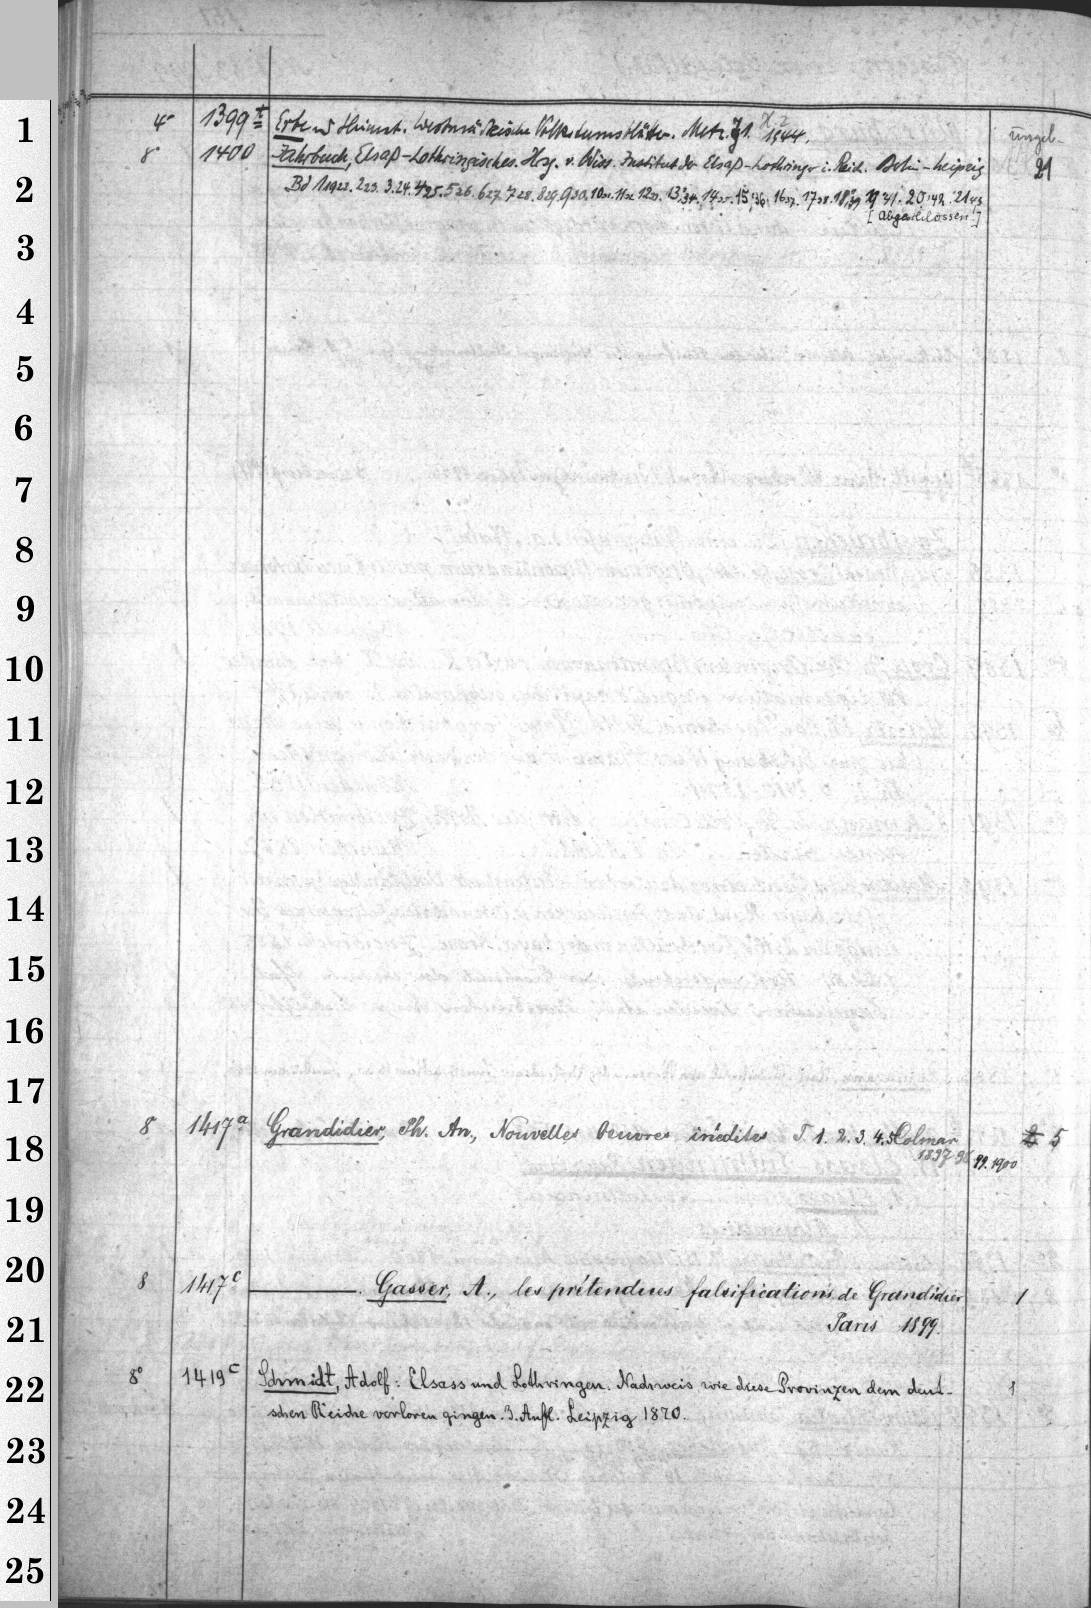 4° 1399 t Erbe und Heimat. Westmärkische Volkstumsblätter. Metz Jg 1. 1944. ungeb.
8° 1400 Jahrbuch, Elsaß-Lothringisches. Hrsg. v. Wiss. Institut der Elsaß-Lothringer i. Reich. Berlin-Leipzig 21
Bd 1 1922. 2 23. 3. 24. 4 25. 5 26. 6 27. 7 28. 8 29. 9 30. 10 31. 11 32. 12 33. 13 34. 14 35. 15 36. 16 37. 17 38. 18 39. 19 41. 20 42. 21 43
[abgeschlossen!]
8 1417 a Grandidier, Ph. An., Nouvelles Oeuvres inédites T. 1. 2. 3. 4. 5 Colmar 5
1897-98 99. 1900
8 1417 c ———. Gasser, A., les prétendues falsifications de Grandidier 1
Paris 1899.
8° 1419 c Schmidt, Adolf: Elsass und Lothringen. Nachweis wie diese Provinzen dem deut- 1
schen Reiche verloren gingen. 3. Aufl. Leipzig 1870.